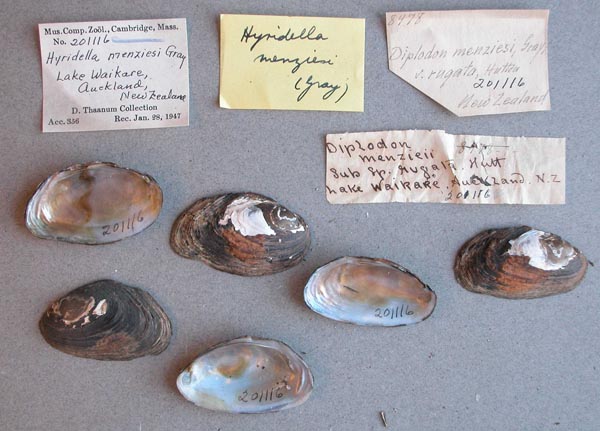 Mus. Comp. Zoöl., Cambridge, Mass.
No. 201116
Hyridella menziesi Gray
Lake Waikare,
Auckland,
New Zealand
D. Thaanum Collection
Acc. 356 Rec. Jan. 28, 1947
Hyridella
menziesi
(Gray)
8978
Diplodon menziesi, Gray,
v. rugata, Hutton
201116
New Zealand
Diplodon
menzieii
Sub sp. rugata, Hutt
Lake Waikare, Auckland. N.Z
201116
201116
201116
201116